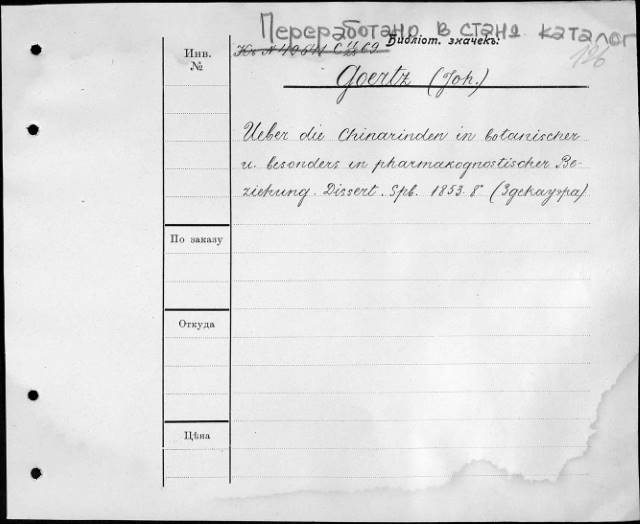 Переработано в стан. каталог
Библіот. значекъ:
Инв.
№
126
Goertz (Joh.)
Ueber die Chinarinden in botanischer
u. besonders in pharmakognostischer Be-
ziehung. Dissert. Spb. 1853. 8° (Здекауэра)
По заказу
Откуда
Цѣна